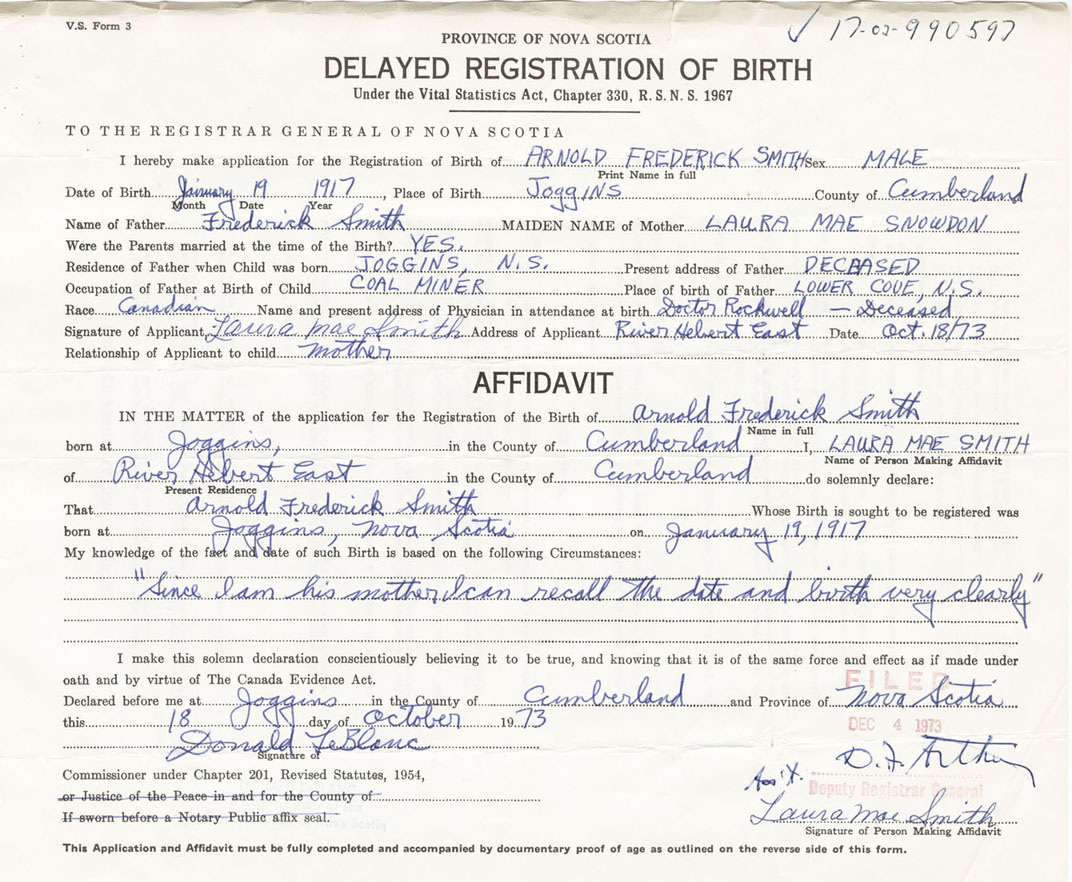 V.S. Form 3
✓ 17-02-990597
PROVINCE OF NOVA SCOTIA
DELAYED REGISTRATION OF BIRTH
Under the Vital Statistics Act, Chapter 330, R.S.N.S. 1967
TO THE REGISTRAR GENERAL OF NOVA SCOTIA
I hereby make application for the Registration of Birth of ARNOLD FREDERICK SMITH Sex MALE
Print Name in full
Date of Birth January 19 1917, Place of Birth JOGGINS County of Cumberland
Month Date Year
Name of Father Frederick Smith MAIDEN NAME of Mother LAURA MAE SNOWDON
Were the Parents married at the time of the Birth? YES.
Residence of Father when Child was born JOGGINS, N.S. Present address of Father DECEASED
Occupation of Father at Birth of Child COAL MINER Place of birth of Father LOWER COVE, N.S.
Race Canadian Name and present address of Physician in attendance at birth Doctor Rockwell – Deceased
Signature of Applicant Laura Mae Smith Address of Applicant River Hebert East Date Oct. 18/73
Relationship of Applicant to child mother
AFFIDAVIT
IN THE MATTER of the application for the Registration of the Birth of Arnold Frederick Smith
Name in full
born at Joggins, in the County of Cumberland I, LAURA MAE SMITH
Name of Person Making Affidavit
of River Hebert East in the County of Cumberland do solemnly declare:
Present Residence
That Arnold Frederick Smith Whose Birth is sought to be registered was
born at Joggins, Nova Scotia on January 19, 1917
My knowledge of the fact and date of such Birth is based on the following Circumstances:
"Since I am his mother I can recall the date and birth very clearly"
I make this solemn declaration conscientiously believing it to be true, and knowing that it is of the same force and effect as if made under
oath and by virtue of The Canada Evidence Act.
FILED
Declared before me at Joggins in the County of Cumberland and Province of Nova Scotia
this 18 day of October 1973
DEC 4 1973
Donald LeBlanc
Signature of
D. F. Arthur
Commissioner under Chapter 201, Revised Statutes, 1954,
Ass't.
Deputy Registrar General
or Justice of the Peace in and for the County of
Laura Mae Smith
If sworn before a Notary Public affix seal.
Signature of Person Making Affidavit
This Application and Affidavit must be fully completed and accompanied by documentary proof of age as outlined on the reverse side of this form.